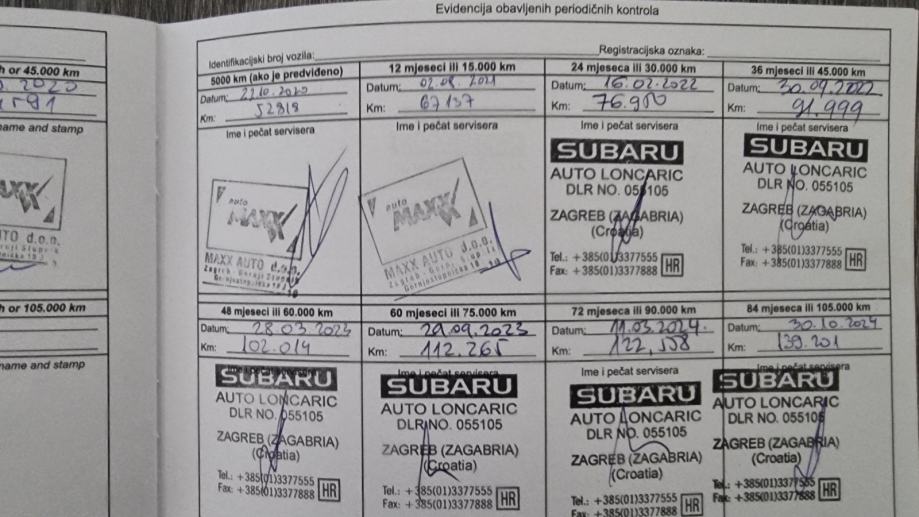 Evidencija obavljenih periodičnih kontrola
Identifikacijski broj vozila:
Registracijska oznaka:
h or 45.000 km
2020
name and stamp
h or 105.000 km
name and stamp
5000 km (ako je predviđeno)
Datum:
Km: 52818
Ime i pečat servisera
auto
MAXX
MAXX AUTO d.o.o.
12 mjeseci ili 15.000 km
Datum: 02.08.2021
Km: 67137
Ime i pečat servisera
auto
MAXX
MAXX AUTO d.o.o.
24 mjeseca ili 30.000 km
Datum: 16.02.2022
Km: 76.950
Ime i pečat servisera
SUBARU
AUTO LONCARIC
DLR NO. 055105
ZAGREB (ZAGABRIA)
(Croatia)
Tel.: +385(01)3377555
Fax: +385(01)3377888
HR
36 mjeseci ili 45.000 km
Datum: 30.09.2022
Km: 91.999
Ime i pečat servisera
SUBARU
AUTO LONCARIC
DLR NO. 055105
ZAGREB (ZAGABRIA)
(Croatia)
Tel.: +385(01)3377555
Fax: +385(01)3377888
HR
48 mjeseci ili 60.000 km
Datum: 28.03.2023
Km: 102.014
SUBARU
AUTO LONCARIC
DLR NO. 055105
ZAGREB (ZAGABRIA)
(Croatia)
Tel.: +385(01)3377555
Fax: +385(01)3377888
HR
60 mjeseci ili 75.000 km
Datum: 29.09.2023
Km: 112.265
Ime i pečat servisera
SUBARU
AUTO LONCARIC
DLR NO. 055105
ZAGREB (ZAGABRIA)
(Croatia)
Tel.: +385(01)3377555
Fax: +385(01)3377888
HR
72 mjeseca ili 90.000 km
Datum: 11.03.2024.
Km: 122,558
Ime i pečat servisera
SUBARU
AUTO LONCARIC
DLR NO. 055105
ZAGREB (ZAGABRIA)
(Croatia)
Tel.: +385(01)3377555
Fax: +385(01)3377888
HR
84 mjeseca ili 105.000 km
Datum: 30.10.2024
Km: 139.201
Ime i pečat servisera
SUBARU
AUTO LONCARIC
DLR NO. 055105
ZAGREB (ZAGABRIA)
(Croatia)
Tel.: +385(01)3377555
Fax: +385(01)3377888
HR